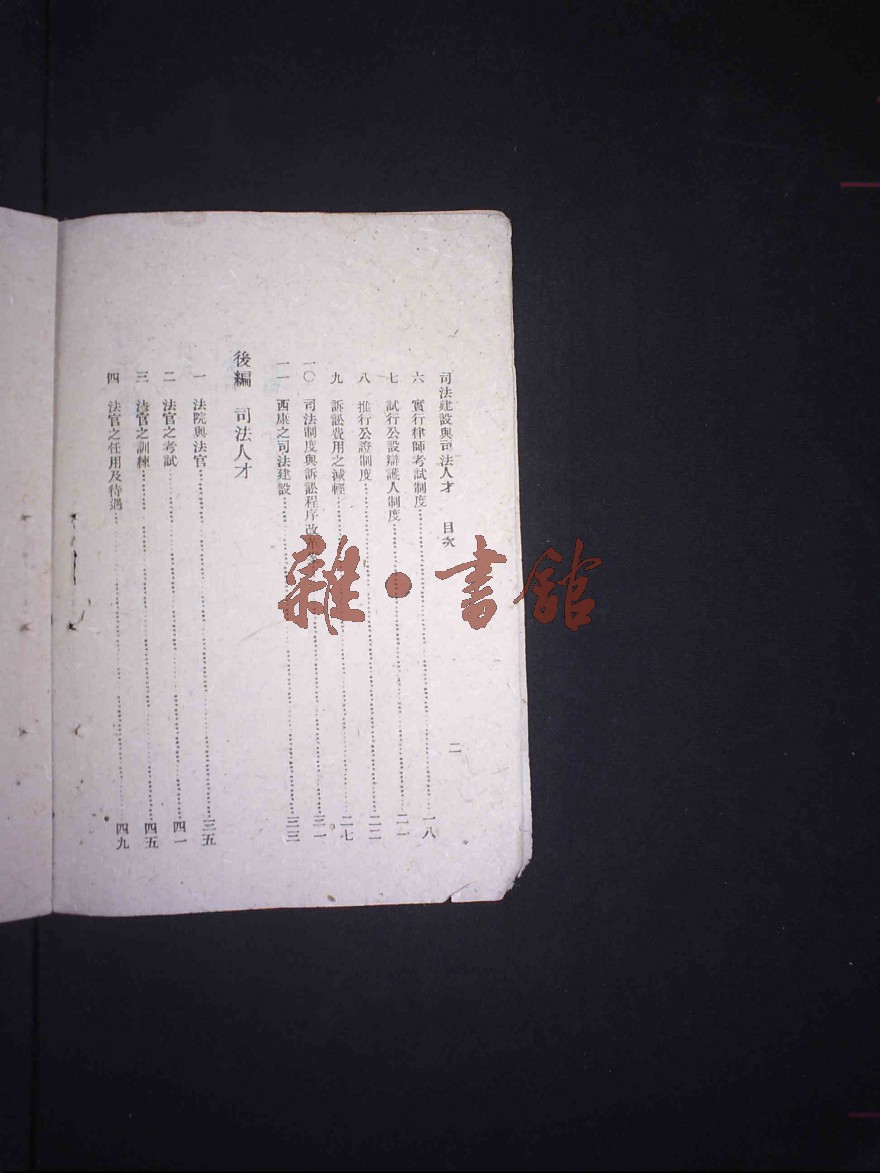 司法建設與司法人才 目次 二
六 實行律師考試制度……一八
七 試行公設辯護人制度……二一
八 推行公證制度……二二
九 訴訟費用之減輕……二七
一〇 司法制度與訴訟程序改……三一
一一 西康之司法建設……三三
後編 司法人才
一 法院與法官……三五
二 法官之考試……四一
三 法官之訓練……四五
四 法官之任用及待遇……四九
雜·書館